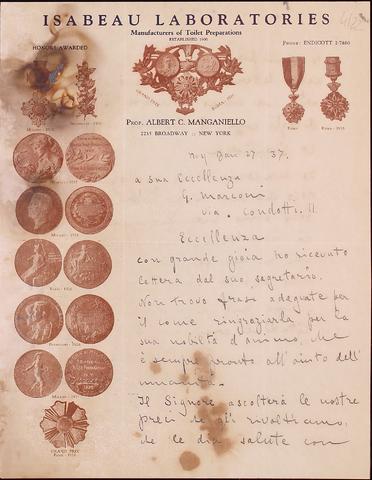 ISABEAU LABORATORIES
Manufacturers of Toilet Preparations
ESTABLISHED 1906
HONORS AWARDED
PHONE: ENDICOTT 2-7460
GRAND PRIX
ROMA
PROF. ALBERT C. MANGANIELLO
2255 BROADWAY :: NEW YORK
ny Jan 27 37.
a sua Eccellenza
G. Marconi
via. Condotti. 11
Eccellenza
con grande gioia ho ricevuto
lettera dal suo segretario.
Non trovo frasi adeguate per
il come ringraziarla per la
sua nobiltà d'animo, che
è sempre pronto all'aiuto dell'
umanità.
Il Signore ascolterà le nostre
preci che gli rivolticiamo,
che le dia salute con
GRAND PRIX